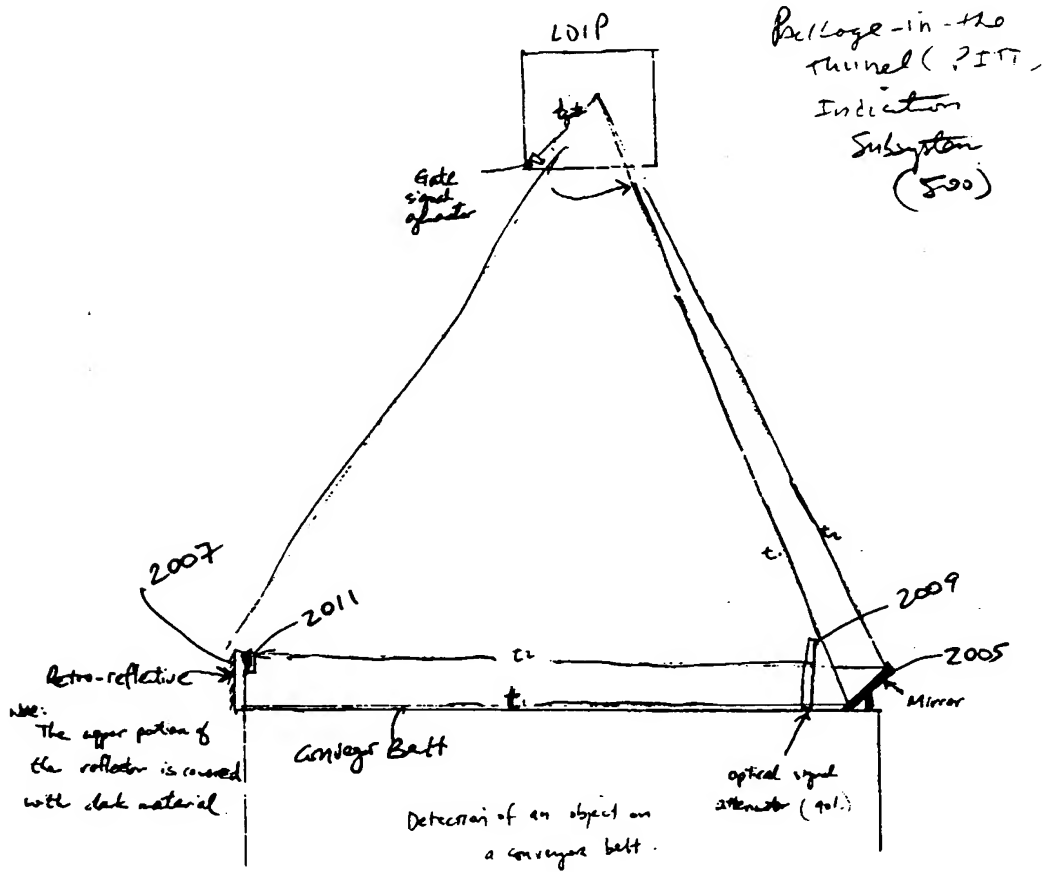 LDIP
Package-in-the
Tunnel (PIT)
Indication
Subsystem
(500)
Gate
signal
t1
t2
2007
2011
2009
2005
Retro-reflective
t2
t1
Mirror
Note:
The upper portion of
the reflector is covered
with dark material
Conveyor Belt
optical signal
attenuator
Detection of an object on
a conveyor belt.